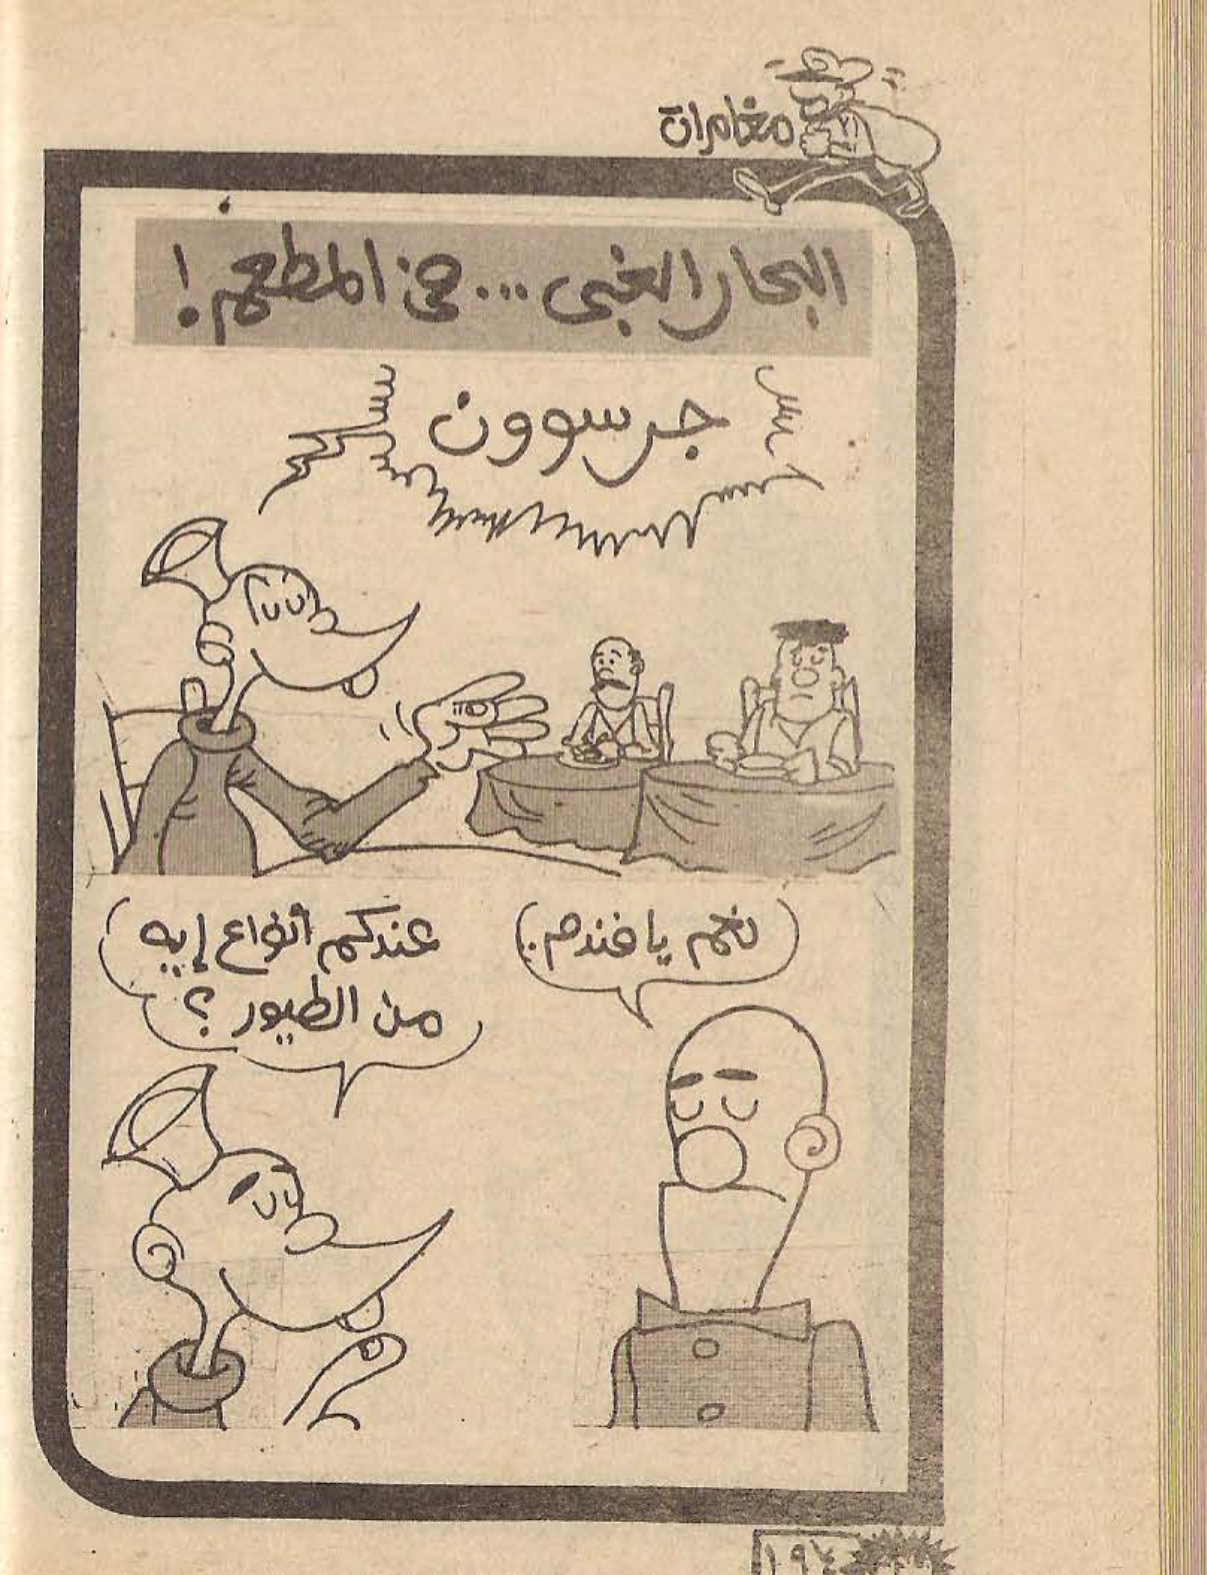 مغامرات
البحار الغبى ... فى المطعم !
جرسوون
نعم يا فندم .
عندكم أنواع إيه
من الطيور ؟
١٩٤